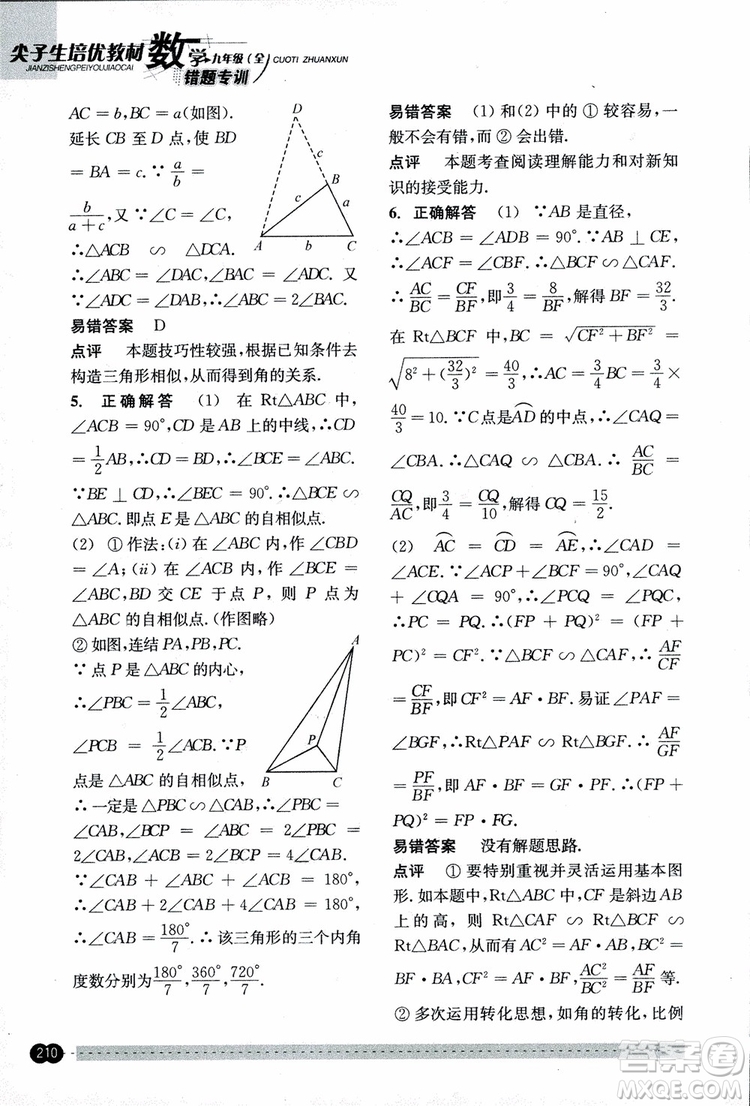 尖子生培优教材 数学 九年级(全) CUOTI ZHUANXUN
JIANZISHENGPEIYOUJIAOCAI 错题专训
AC = b, BC = a(如图).
延长 CB 至 D 点, 使 BD
= BA = c. ∵ a/b =
b/(a+c), 又∵∠C = ∠C,
∴△ACB ∽ △DCA.
∴∠ABC = ∠DAC, ∠BAC = ∠D. 又
∵∠ADC = ∠DAB, ∴∠ABC = 2∠BAC.
易错答案 D
点评 本题技巧性较强, 根据已知条件去
构造三角形相似, 从而得到角的关系.
5. 正确解答 (1) 在 Rt△ABC 中,
∠ACB = 90°, CD 是 AB 上的中线, ∴CD
= 1/2 AB, ∴CD = BD, ∴∠BCE = ∠ABC.
∵BE ⊥ CD, ∴∠BEC = 90°. ∴△BCE ∽
△ABC. 即点 E 是△ABC 的自相似点.
(2) ①作法: (i) 在∠ABC 内, 作∠CBD
= ∠A; (ii) 在∠ACB 内, 作∠BCE =
∠ABC, BD 交 CE 于点 P, 则 P 点为
△ABC 的自相似点. (作图略)
② 如图, 连结 PA, PB, PC.
∵ 点 P 是△ABC 的内心,
∴∠PBC = 1/2 ∠ABC,
∠PCB = 1/2 ∠ACB. ∵P
点是△ABC 的自相似点,
∴ 一定是△PBC ∽△CAB, ∴∠PBC =
∠CAB, ∠BCP = ∠ABC = 2∠PBC =
2∠CAB, ∠ACB = 2∠BCP = 4∠CAB.
∵∠CAB + ∠ABC + ∠ACB = 180°,
∴∠CAB + 2∠CAB + 4∠CAB = 180°.
∴∠CAB = 180°/7. ∴ 该三角形的三个内角
度数分别为 180°/7, 360°/7, 720°/7.
D
c
B
c
a
A
b
C
A
P
B
C
易错答案 (1) 和(2) 中的 ① 较容易, 一
般不会有错, 而 ② 会出错.
点评 本题考查阅读理解能力和对新知
识的接受能力.
6. 正确解答 (1) ∵AB 是直径,
∴∠ACB = ∠ADB = 90°. ∵AB ⊥ CE,
∴∠ACF = ∠CBF. ∴△BCF ∽ △CAF.
∴ AC/BC = CF/BF, 即 3/4 = 8/BF, 解得 BF = 32/3.
在 Rt△BCF 中, BC = √(CF² + BF²) =
√(8² + (32/3)²) = 40/3, ∴AC = 3/4 BC = 3/4 ×
40/3 = 10. ∵C点是⌒AD的中点, ∴∠CAQ =
∠CBA. ∴△CAQ ∽ △CBA. ∴ AC/BC =
CQ/AC, 即 3/4 = CQ/10, 解得 CQ = 15/2.
(2) ⌒AC = ⌒CD = ⌒AE, ∴∠CAD =
∠ACE. ∵∠ACP + ∠BCF = 90°, ∠CAQ
+ ∠CQA = 90°, ∴∠PCQ = ∠PQC.
∴PC = PQ. ∴(FP + PQ)² = (FP +
PC)² = CF². ∵△BCF ∽ △CAF, ∴ AF/CF
= CF/BF, 即 CF² = AF · BF. 易证∠PAF =
∠BGF, ∴Rt△PAF ∽ Rt△BGF, ∴ AF/GF
= PF/BF, 即 AF · BF = GF · PF. ∴(FP +
PQ)² = FP · FG.
易错答案 没有解题思路.
点评 ① 要特别重视并灵活运用基本图
形. 如本题中, Rt△ABC 中, CF 是斜边 AB
上的高, 则 Rt△BCF ∽ Rt△CAF ∽
Rt△BAC, 从而有 AC² = AF · AB, BC² =
BF · BA, CF² = AF · BF, AC²/BC² = AF/BF 等.
② 多次运用转化思想, 如角的转化, 比例
210
答案圈
MXQE.COM